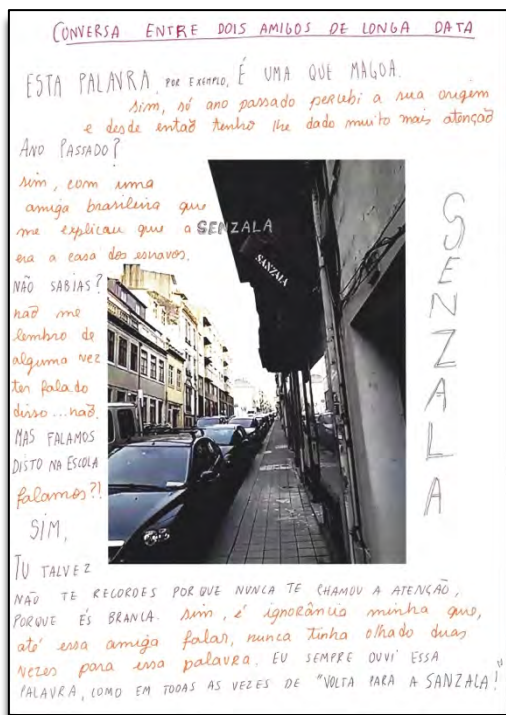 CONVERSA ENTRE DOIS AMIGOS DE LONGA DATA
ESTA PALAVRA, POR EXEMPLO, É UMA QUE MAGOA.
sim, só ano passado percebi a sua origem
e desde então tenho lhe dado muito mais atenção
ANO PASSADO?
sim, com uma
amiga brasileira que
me explicou que a SENZALA
era a casa dos escravos.
NÃO SABIAS?
não me
lembro de
alguma vez
ter falado
disso...não.
MAS FALAMOS
DISTO NA ESCOLA
falamos?!
SIM,
TU TALVEZ
NÃO TE RECORDES PORQUE NUNCA TE CHAMOU A ATENÇÃO,
PORQUE ÉS BRANCA. sim, é ignorância minha que,
até essa amiga falar, nunca tinha olhado duas
vezes para essa palavra. EU SEMPRE OUVI ESSA
PALAVRA, COMO EM TODAS AS VEZES DE "VOLTA PARA A SANZALA!"
SANZALA
SENZALA